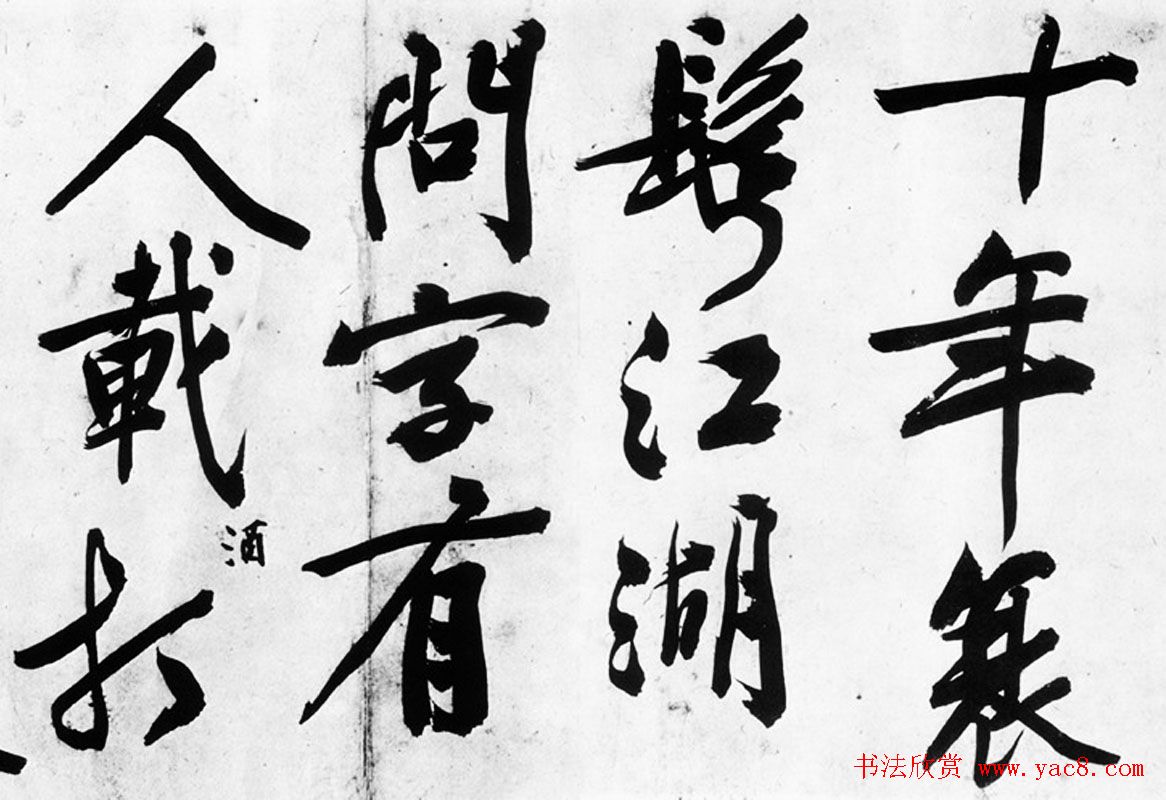 十年衰
鬢江湖
問字有
人載
酒
书法欣赏 www.yac8.com